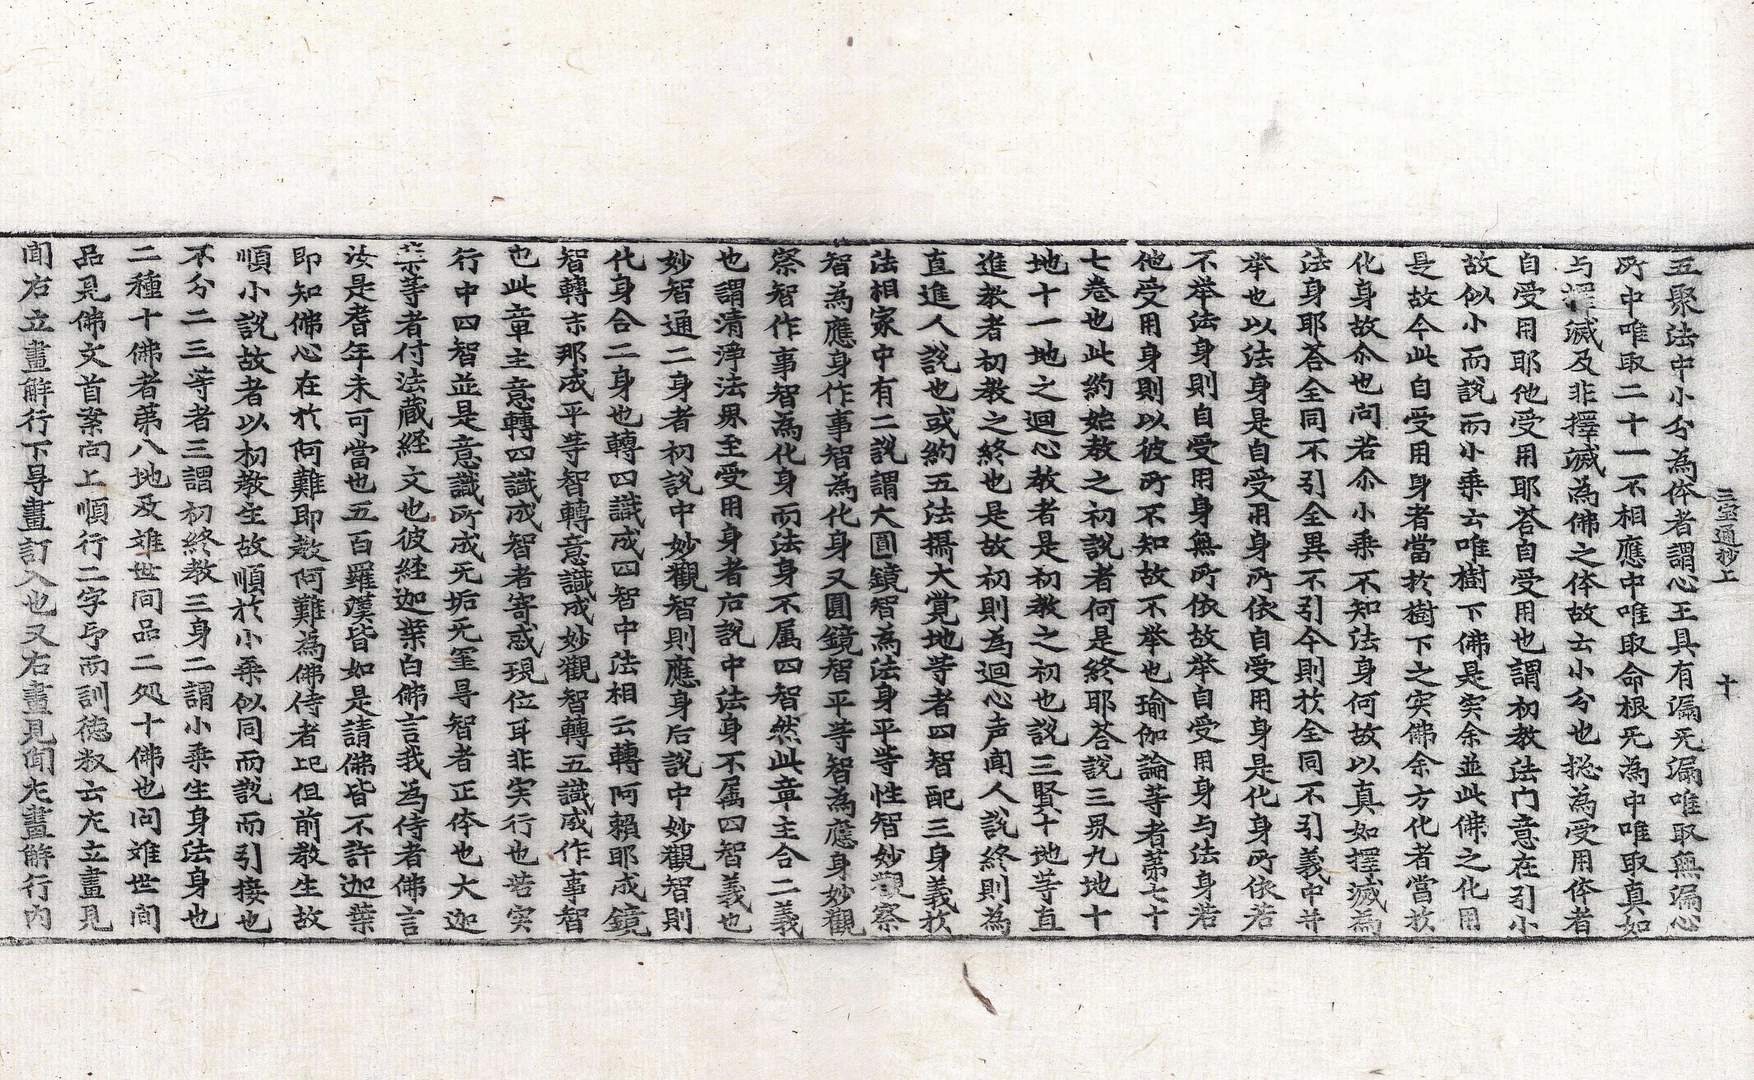 三宝通抄上　十
五聚法中小分為体者謂心王具有漏无漏唯取無漏心
所中唯取二十一不相應中唯取命根无為中唯取真如
与擇滅及非擇滅為佛之体故云小分也捴為受用体者
自受用耶他受用耶荅自受用也謂初教法门意在引小
故似小而說而小乗云唯樹下佛是实余並此佛之化用
是故今此自受用身者當於樹下之实佛余方化者當扵
化身故尒也问若尒小乗不知法身何故以真如擇滅為
法身耶荅全同不引全異不引今則扵全同不引義中并
举也以法身是自受用身所依自受用身是化身所依若
不举法身則自受用身無所依故举自受用身与法身若
他受用身則以彼所不知故不举也瑜伽論等者第七十
七卷也此約始教之初說者何是終耶荅說三界九地十
地十一地之迴心教者是初教之初也說三賢十地等直
進教者初教之終也是故初則為迴心声闻人說終則為
直進人說也或約五法攝大覚地等者四智配三身義扵
法相家中有二說謂大圓鏡智為法身平等性智妙觀察
智為應身作事智為化身又圓鏡智平等智為應身妙觀
察智作事智為化身而法身不属四智然此章主合二義
也謂清淨法界至受用身者右說中法身不属四智義也
妙智通二身者初說中妙觀智則應身后說中妙觀智則
化身合二身也轉四識成四智中法相云轉阿賴耶成鏡
智轉末那成平等智轉意識成妙觀智轉五識成作事智
也此章主意轉四識成智者寄惑現位耳非实行也若实
行中四智並是意識所成无垢无罣㝵智者正体也大迦
𦯧等者付法蔵経文也彼経迦葉白佛言我為侍者佛言
汝是耆年未可當也五百羅漢皆如是請佛皆不許迦葉
即知佛心在於阿難即教阿難為佛侍者記但前教生故
順小說故者以初教主故順於小乗似同而說而引接也
不分二三等者三謂初終教三身二謂小乗生身法身也
二種十佛者第八地及離世间品二処十佛也问離世间
品見佛文首案向上順行二字与而訓德叙云左立畫見
闻右立畫解行下㝵畫訂入也又右畫見闻左畫解行内